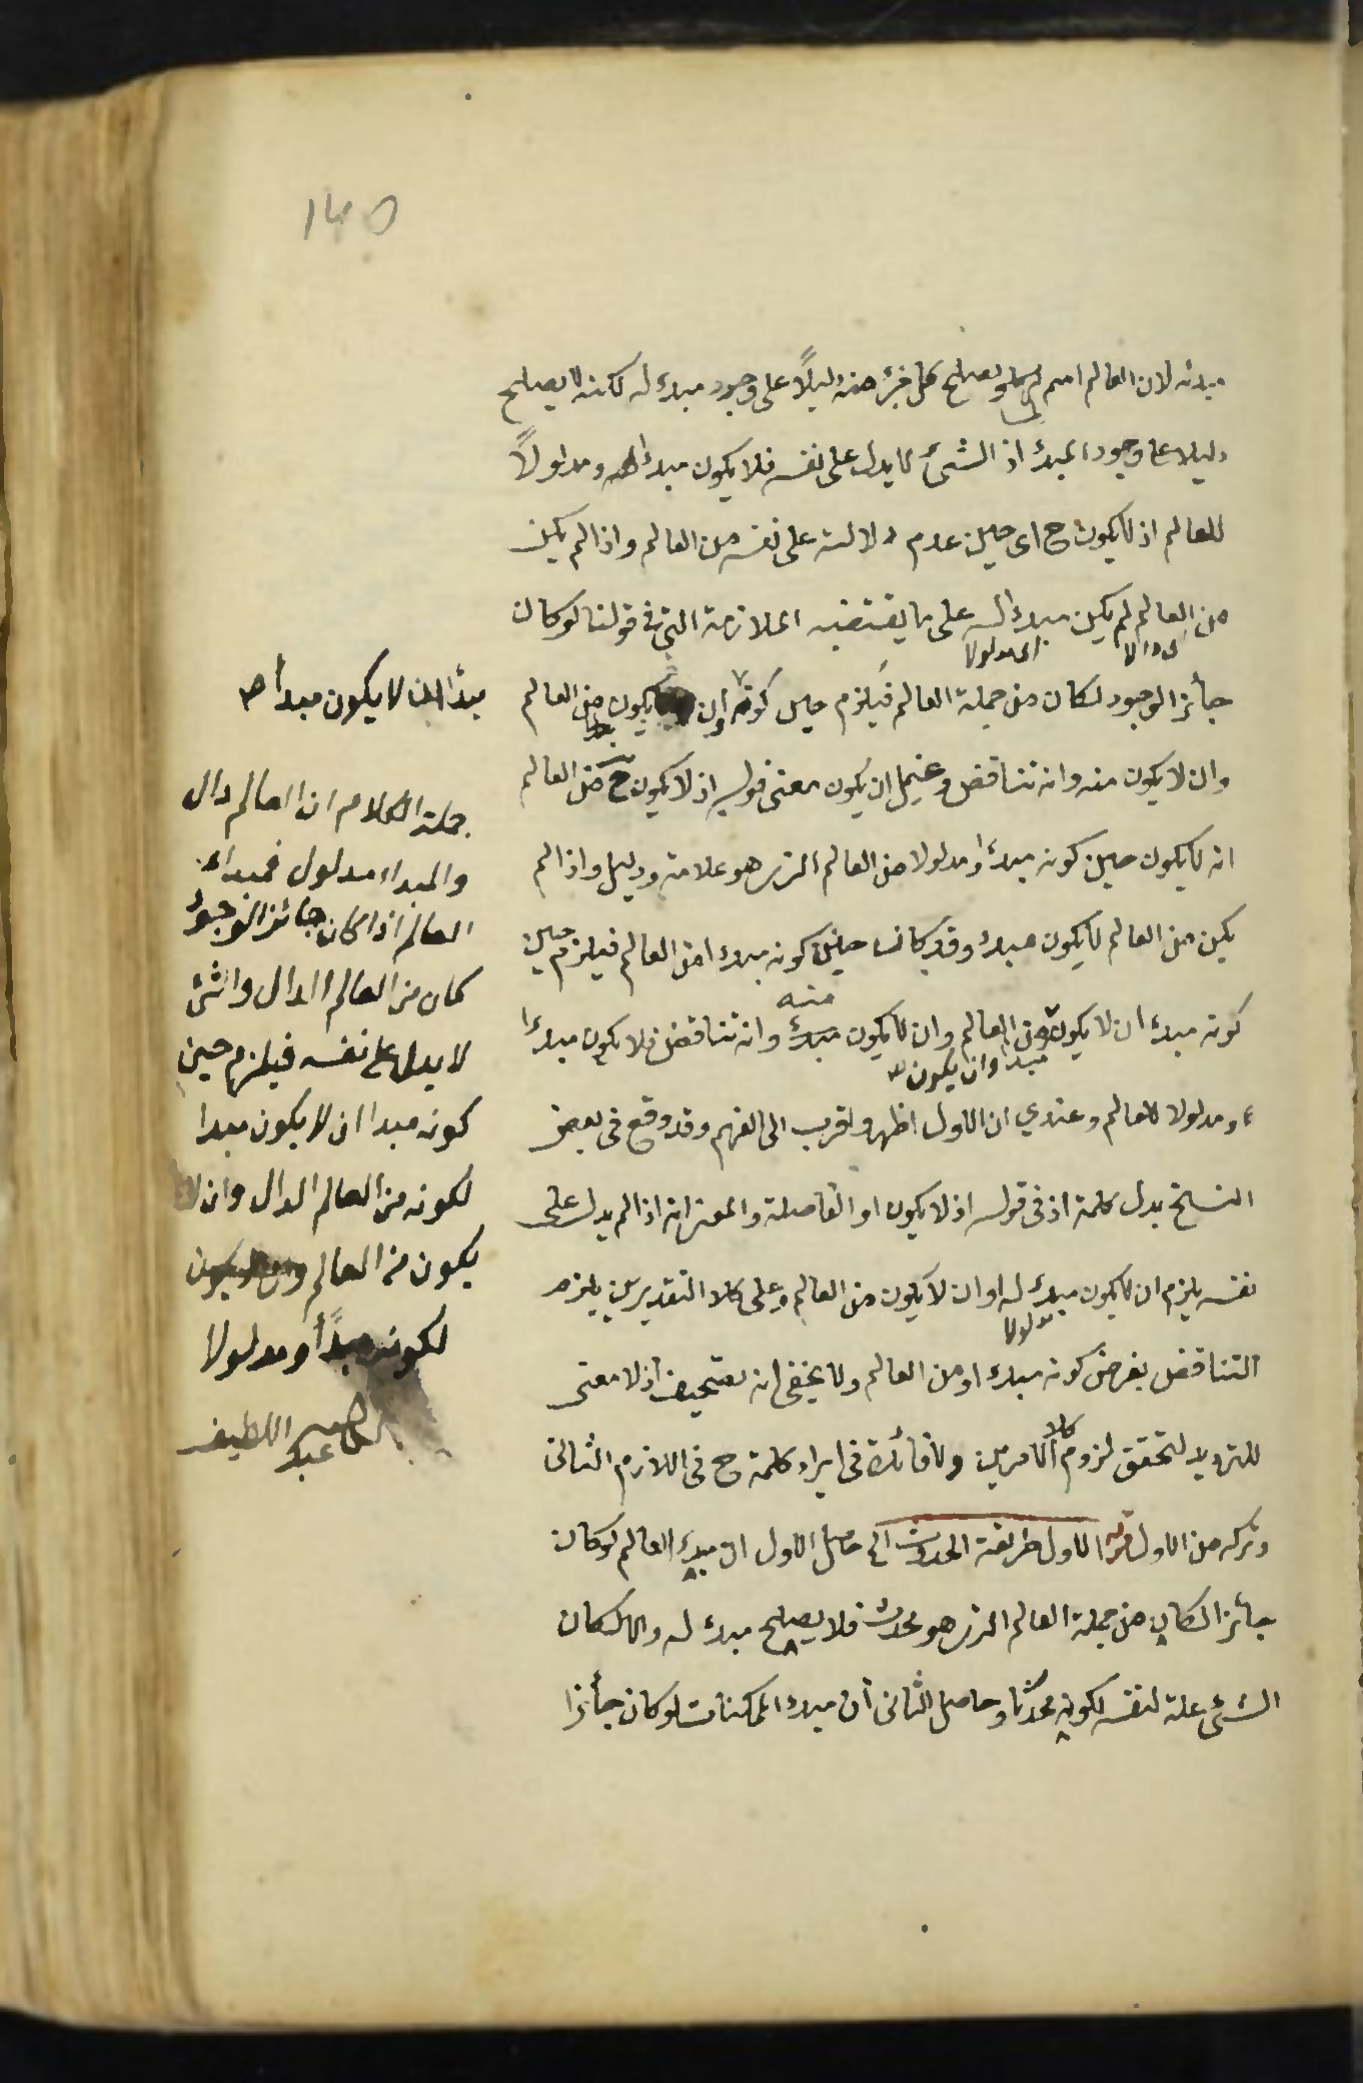 140
مبدئه لان العالم اسم لما يصلح كل جزء منه دليلاً على وجود مبدء له لكنه لا يصلح
دليلا على وجود المبدء اذ الشئ لا يدل على نفسه فلا يكون مبدءا له ومدلولاً
للعالم اذ لا يكون ح اى حين عدم دلالته على نفسه من العالم واذا لم يكن
من العالم لم يكن مبدءا له على ما يقتضيه الملازمة التى فى قولنا لو كان
اى دالا اى مدلولا
جائز الوجود لكان من جملة العالم فيلزم حين كونه ان يكون من العالم
وان لا يكون منه وانه تناقض ويحتمل ان يكون معنى قوله اذ لا يكون ح من العالم
انه لا يكون حين كونه مبدءا ومدلولا من العالم الذى هو علامة ودليل واذا لم
يكن من العالم لا يكون مبدء وقد كان حين كونه مبدءا من العالم فيلزم حين
كونه مبدء ان لا يكون من العالم وان لا يكون مبدء وانه تناقض فلا يكون مبدءا
منه
مبدا وان يكون
ومدلولا للعالم وعندي ان الاول اظهر واقرب الى الفهم وقد وقع فى بعض
النسخ بدل كلمة اذ فى قوله اذ لا يكون او الفاصلة والمعنى انه اذا لم يدل على
نفسه يلزم ان لا يكون مبدء له او ان لا يكون من العالم وعلى كلا التقديرين يلزم
مدلولا
التناقض بفرض كونه مبدء او من العالم ولا يخفى انه تصحيف اذ لا معنى
للترديد لتحقق لزوم كلا الامرين ولا فائدة فى ايراد كلمة ح فى اللازم الثانى
وتركه من الاول قوله الاول طريقة الحدوث الخ حاصل الاول ان مبدء العالم لو كان
جائزا لكان من جملة العالم الذى هو محدث فلا يصلح مبدء له والا لكان
الشئ علة لنفسه لكونه محدثا وحاصل الثانى ان مبدء الممكنات لو كان جائزا
مبدأ ان لا يكون مبدأ صح
جملة الكلام ان العالم دال
والمبداء مدلول فمبداء
العالم اذا كان جائز الوجود
كان من العالم الدال والشئ
لا يدل على نفسه فيلزم حين
كونه مبدا ان لا يكون مبدا
لكونه من العالم الدال وان لا
يكون من العالم
لكونه مبدأ ومدلولا
عبد اللطيف